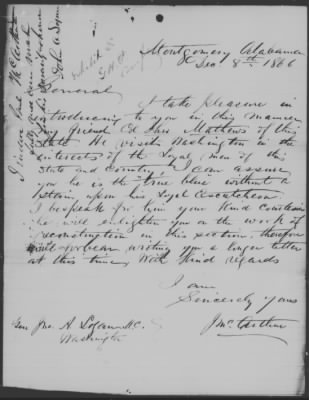 Montgomery Alabama
Dec 8th 1866
General
I take pleasure in
introducing to you in this manner
my friend Col Mathews of this
State. He visits Washington in the
interests of the Loyal men of this
State and Country, I can assure
you he is the true blue without a
stain upon his Loyal Escutcheon
I bespeak for him your Kind Courtesies
he will enlighten you on the work of
reconstruction in this section, therefore
will forbear writing you a longer letter
at this time, With Kind regards
I am
Sincerely Yours
J McArthur
Gen Jno. A. Logan M.C.
Washington